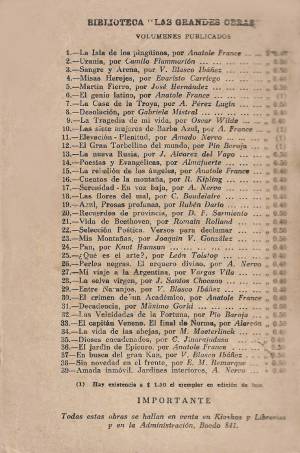 BIBLIOTECA "LAS GRANDES OBRAS"
VOLUMENES PUBLICADOS
1.—La Isla de los pingüinos, por Anatole France
2.—Urania, por Camilo Flammarión
3.—Sangre y Arena, por V. Blasco Ibáñez
4.—Misas Herejes, por Evaristo Carriego
5.—Martín Fierro, por José Hernández
6.—El genio latino, por Anatole France
7.—La Casa de la Troya, por A. Pérez Lugín
8.—Desolación, por Gabriela Mistral
9.—La Tragedia de mi vida, por Oscar Wilde
10.—Las siete mujeres de Barba Azul, por A. France
11.—Elevación - Plenitud, por Amado Nervo
12.—El Gran Torbellino del mundo, por Pío Baroja
13.—La nueva Rusia, por J. Alvarez del Vayo
14.—Poesías y Evangélicas, por Almafuerte
15.—La rebelión de los ángeles, por Anatole France
16.—Cuentos de la montaña, por R. Kipling
17.—Serenidad - En voz baja, por A. Nervo
18.—Las flores del mal, por C. Baudelaire
19.—Azul, Prosas profanas, por Rubén Darío
20.—Recuerdos de provincia, por D. F. Sarmiento
21.—Vida de Beethoven, por Romain Rolland
22.—Selección Poética. Versos para declamar
23.—Mis Montañas, por Joaquín V. González
24.—Pan, por Knut Hamsun
25.—¿Qué es el arte?, por León Tolstoy
26.—Perlas negras. El arquero divino, por A. Nervo
27.—Mi viaje a la Argentina, por Vargas Vila
28.—La selva virgen, por J. Santos Chocano
29.—Entre Naranjos, por V. Blasco Ibáñez
30.—El crimen de un Académico, por Anatole France
31.—Decadencia, por Máximo Gorki
32.—Las Veleidades de la Fortuna, por Pío Baroja
33.—El capitán Veneno. El final de Norma, por Alarcón
34.—La vida de las abejas, por M. Maeterlinck
35.—Dioses encadenados, por C. Jinarajadasa
36.—El jardín de Epicuro, por Anatole France
37.—En busca del gran Kan, por V. Blasco Ibáñez
38.—Sin novedad en el frente, por E. M. Remarque
39.—Amada inmóvil. Jardines interiores, A. Nervo
(1) Hay existencia a $ 1.50 el ejemplar en edición de lujo.
IMPORTANTE
Todas estas obras se hallan en venta en Kioskos y Librerías
y en la Administración, Boedo 841.